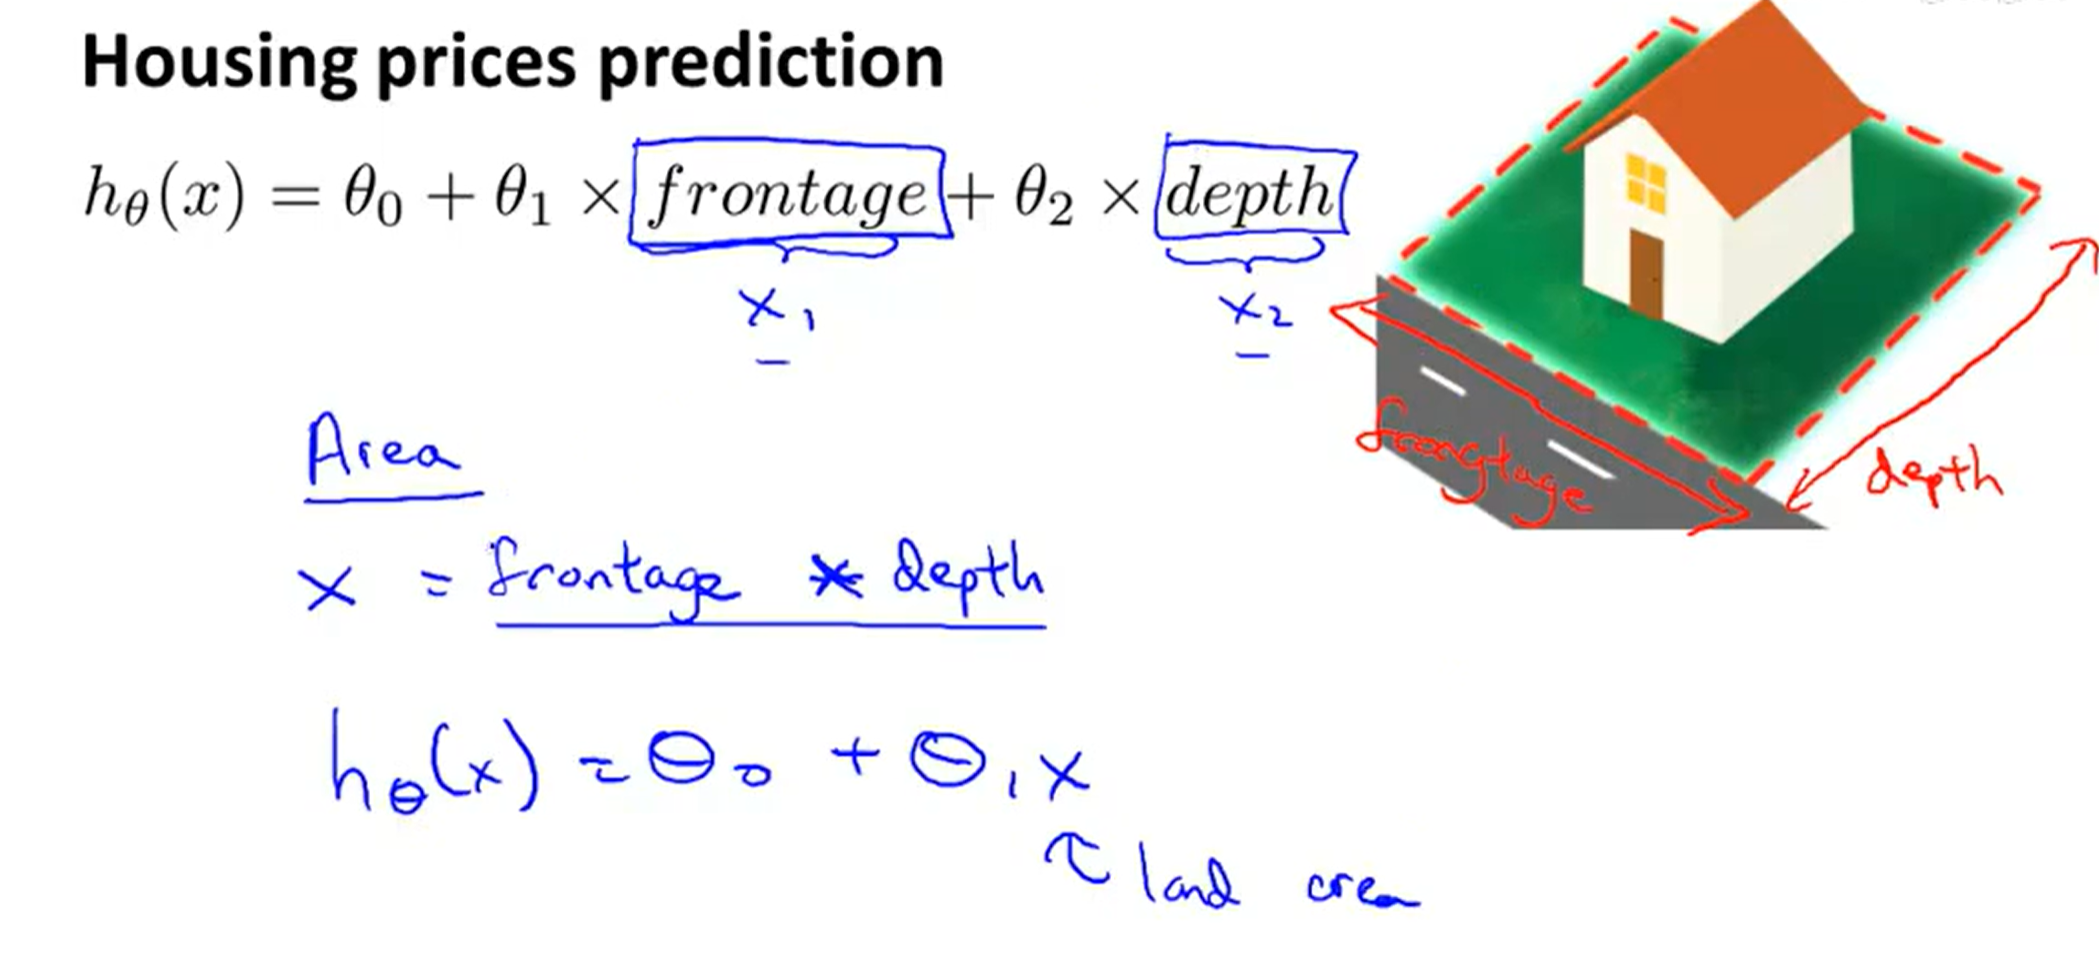 Housing prices prediction
hθ(x) = θ0 + θ1 × frontage + θ2 × depth
x1
x2
frongtage
depth
Area
x = frontage * depth
hθ(x) = θ0 + θ1x
land area